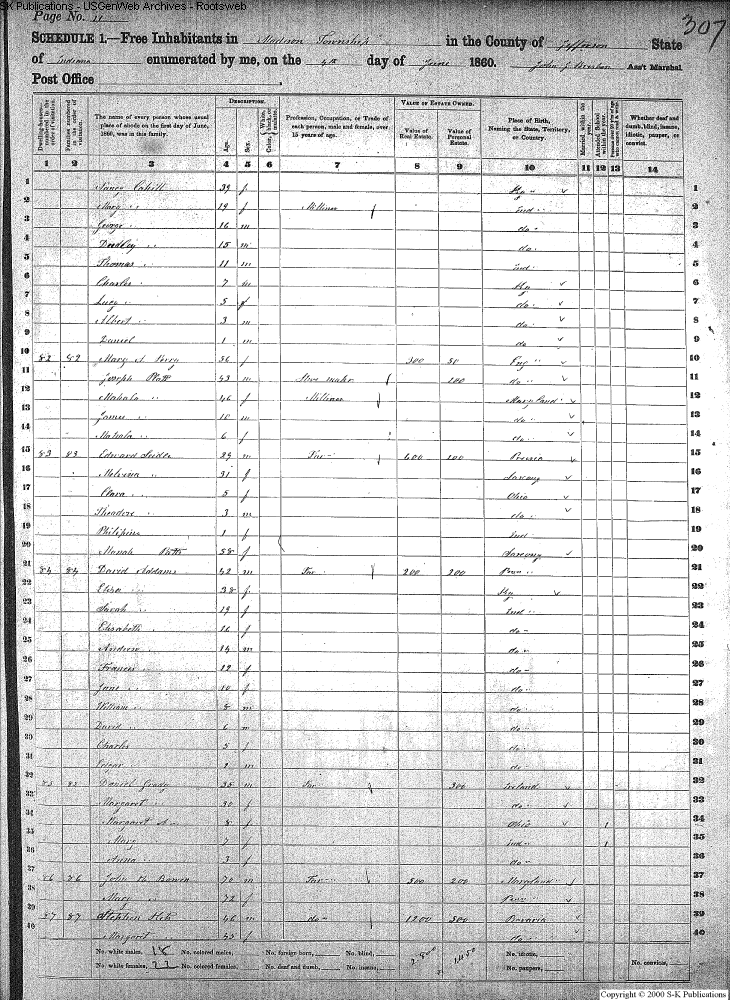 S-K Publications - USGenWeb Archives - Rootsweb
Page No. 11
307
SCHEDULE 1.—Free Inhabitants in Madison Township in the County of Jefferson State
of Indiana enumerated by me, on the 4th day of June 1860. Ass't Marshal
Post Office
DESCRIPTION. VALUE OF ESTATE OWNED.
Dwelling-houses—numbered in the order of visitation. Families numbered in the order of visitation. The name of every person whose usual place of abode on the first day of June, 1860, was in this family. Age. Sex. Color, White, black, or mulatto. Profession, Occupation, or Trade of each person, male and female, over 15 years of age. Value of Real Estate. Value of Personal Estate. Place of Birth, Naming the State, Territory, or Country. Married within the year. Attended School within the year. Whether deaf and dumb, blind, insane, idiotic, pauper, or convict.
1 2 3 4 5 6 7 8 9 10 11 12 13 14
1 Nancy Cahill 39 f Ky 1
2 Mary " 19 f Milliner Ind 2
3 George " 16 m do 3
4 Dudley " 15 m do 4
5 Thomas " 11 m Ind 5
6 Charles " 7 m Ky 6
7 Lucy " 5 f do 7
8 Albert " 3 m do 8
9 Daniel 1 m do 9
10 82 82 Mary A Perry 56 f 300 50 Eng 10
11 Joseph Platt 43 m 100 do 11
12 Mahala " 46 f Milliner Maryland 12
13 James " 10 m do 13
14 Mahala " 6 f do 14
15 83 83 Edward 29 m Far 600 100 Prussia 15
16 Melvina " 31 f Saxony 16
17 Clara " 5 f Ohio 17
18 Theodore " 3 m do 18
19 Philipine 1 f Ind 19
20 58 f Saxony 20
21 84 84 David Addams 42 m Far 200 200 Penn 21
22 Eliza " 38 f Ky 22
23 Sarah " 19 f Ind 23
24 Elisabeth " 16 f do 24
25 Andrew " 14 m do 25
26 Francis " 12 f do 26
27 Jane " 10 f do 27
28 William " 8 m do 28
29 David " 6 m do 29
30 Charles 5 f do 30
31 2 m do 31
32 85 85 Daniel Grady 35 m Far 300 Ireland 32
33 Margaret 30 f do 33
34 Margaret A 8 f Ohio 1 34
35 Mary " 7 f Ind 1 35
36 Anna " 3 f do 36
37 86 86 John H Bowen 70 m Far 500 200 Maryland 37
38 Mary " 72 f Penn 38
39 87 87 Stephen 46 m do 1200 500 Bavaria 39
40 Margaret 45 f do 40
No. white males, 18 No. colored males, No. foreign born, No. blind, 2800 1450 No. idiotic,
No. white females, 22 No. colored females, No. deaf and dumb, No. insane, No. paupers, No. convicts,
Copyright © 2000 S-K Publications